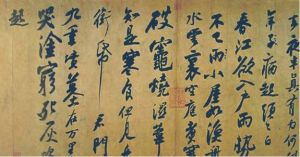 夜半真有力何
年子病起頭已白
春江欲入戶雨勢
不已雨小屋如漁舟
水雲裏空庖煮寒
破竈燒濕葦
知是寒食但見烏
銜帋 君門
九重墳墓在万里
哭塗窮死灰吹
起